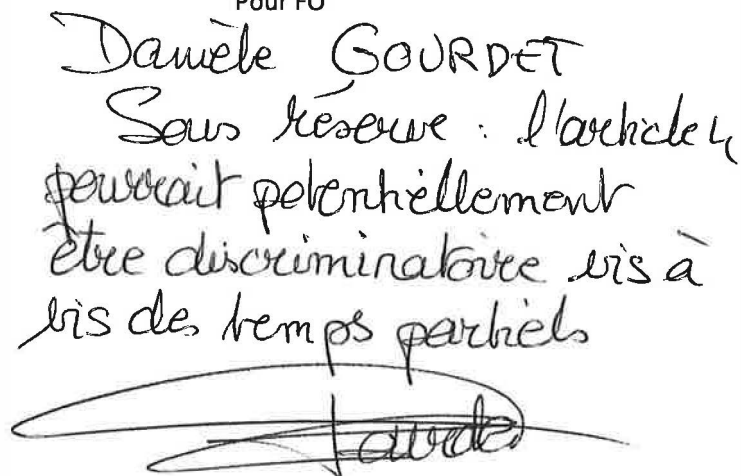 Pour FO
Danièle GOURDET
Sous réserve : l'article 4
pourrait potentiellement
être discriminatoire vis à
vis des temps partiels